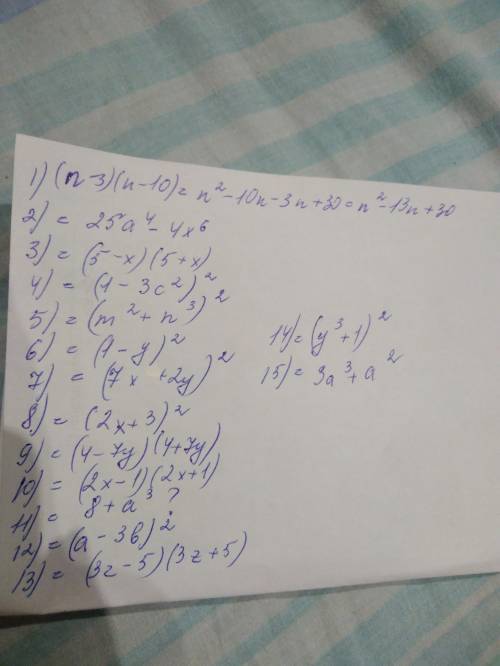 1) (n-3)(n-10)= n²-10n-3n+30=n²-13n+30
2) = 25a⁴-4x⁶
3) = (5-x)(5+x)
4) = (1-3c²)²
5) = (m²+n³)²
6) = (1-y)²
7) = (7x+2y)²
8) = (2x+3)²
9) = (4-7y)(4+7y)
10) = (2x-1)(2x+1)
11) = 8+a³ ?
12) = (a-3b)²
13) = (3z-5)(3z+5)
14) = (y³+1)²
15) = 3a³+a²